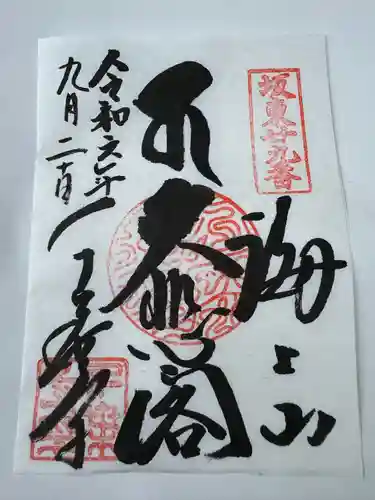 坂東廿九番
海上山
大悲閣
令和六年
九月二十日
千葉寺